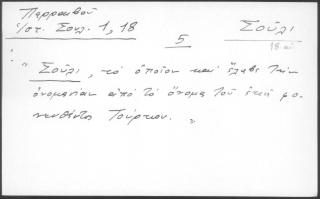 Περραιβοῦ
Ἱστ. Σουλ. 1, 18
5
Σοῦλι
18 αἰ
" Σοῦλι, τὸ ὁποῖον καὶ ἔλαβε τὴν
ὀνομασίαν ἀπὸ τὸ ὄνομα τοῦ ἐκεῖ φο-
νευθέντος Τούρκου. "